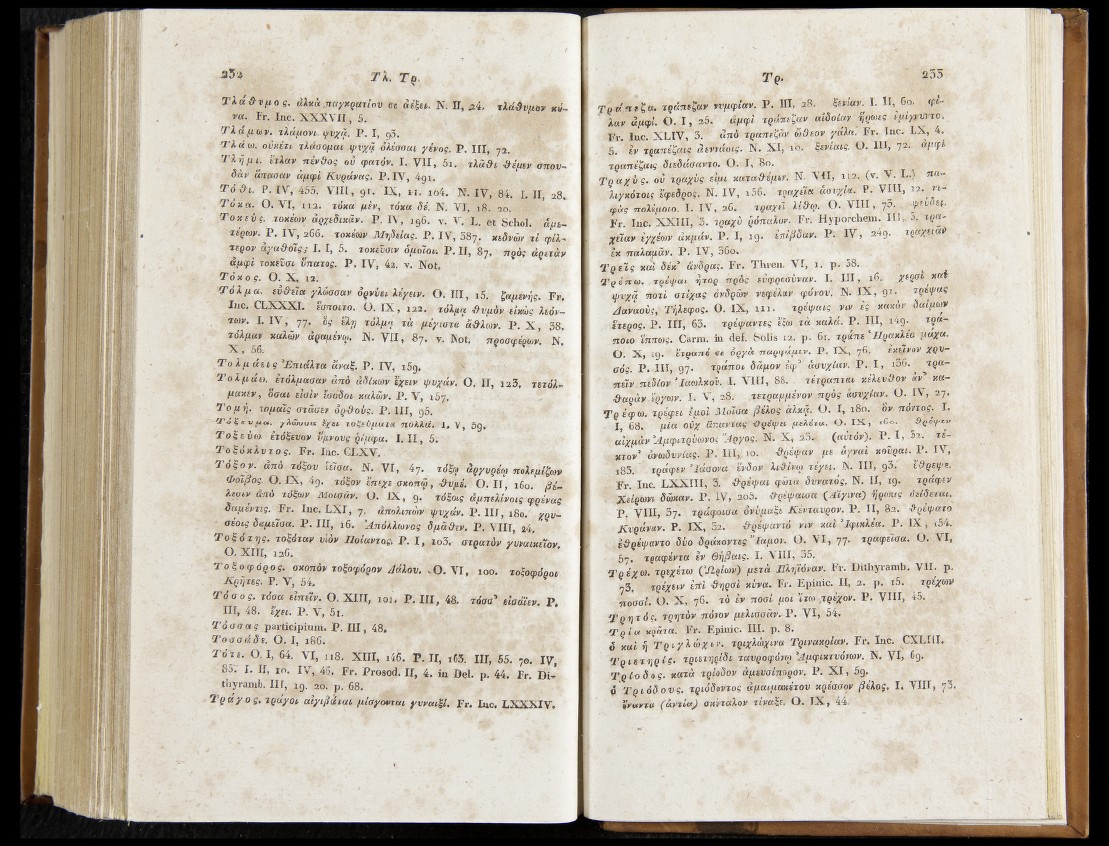 232 Τλ. Τρ.
Τλάθυμος. ἀλκὰ παγκρατίου σε ἀέξει. N. II, 24. τλάθυμον κύ-
να. Fr. Inc. XXXVII, 5.
Τλάμων. τλάμονι ψυχᾷ. P. I, 93.
Τλάω. οὐκέτι τλάσομαι ψυχᾷ ὀλέσσαι γένος. P. III, 72.
Τλῆμι. ἔτλαν πένθος οὐ φατόν. I. VII, 51. τλᾶθι θέμεν σπου-
δὰν ἅπασαν ἀμφὶ Κυράνας. P. IV, 491.
Τόθι. P. IV, 455. VIII, 91. IX, 11. 104. N. IV, 84. I. II, 28.
Τόκα. O. VI, 112. τόκα μὲν, τόκα δέ. N. VI, 18. 20.
Τοκεύς. τοκέων ἀρχεδικᾶν. P. IV, 196. v. V. L. et Schol. ἁμε-
τέρων. P. IV, 266. τοκέων Μηδείας. P. IV, 387. κεδνῶν τί φίλ-
τερον ἀγαθοῖς; I. I, 5. τοκεῦσιν ὁμοῖοι. P. II, 87. πρὸς ἀρετὰν
ἀμφὶ τοκεῦσι ὕπατος. P. IV, 42. v. Not.
Τόκος. O. X, 12.
Τόλμα. εὐθεῖα γλῶσσαν ὀρνύει λέγειν. O. III, 15. ζαμενής. Fr.
Inc. CLXXXI. ἕσποιτο. O. IX, 122. τόλμᾳ θυμὸν εἰκὼς λεόν-
των. I. IV, 77. ὃς ἕλῃ τόλμᾳ τὰ μέγιστα ἄθλων. P. X, 38.
τόλμαν καλῶν ἀραμένῳ. N. VII, 87. v. Not. προσφέρων. N.
X, 56.
Τολμάεις Ἐπιάλτα ἄναξ. P. IV, 159.
Τολμάω. ἐτόλμασαν ἀπὸ ἀδίκων ἔχειν ψυχάν. O. II, 123. τετόλ-
μακεν, ὅσαι εἰσὶν ἔσοδοι καλῶν. P. V, 157.
Τομή. τομαῖς στᾶσεν ὀρθούς. P. III, 95.
Τόξευμα. γλῶσσα ἔχει τοξεύματα πολλά. I. V, 59.
Τοξεύω. ἐτόξευον ὕμνους ῥίμφα. I. II, 5.
Τοξόκλυτος. Fr. Inc. CLXV.
Τόξον. ἀπὸ τόξου ἱεῖσα. N. VI, 47. τόξῳ ἀργυρέῳ πολεμίζων
Φοῖβος. O. IX, 49. τόξον ἔπεχε σκοπῷ, θυμέ. O. II, 160. βέ-
λεσιν ἀπὸ τόξων Μοισᾶν. O. IX, 9. τόξοις ἀμπελίνοις φρένας
δαμέντις. Fr. Inc. LXI, 7. ἀπολιπὼν ψυχάν. P. III, 180. χρυ-
σέοις δαμεῖσα. P. III, 16. Ἀπόλλωνος δμᾶθεν. P. VIII, 24.
Τοξότης. τοξόταν υἱὸν Ποίαντος. P. I, 103. στρατὸν γυναικεῖον.
O. XIII, 126.
Τοξοφόρος. σκοπὸν τοξοφόρον Δάλου. O. VI, 100. τοξοφόροι
Κρῆτες. P. V, 54.
Τόσος. τόσα εἰπεῖν. O. XIII, 102. P. III, 48. τόσα' εἰσάϊεν. P.
III, 48. ἔχει. P. V, 51.
Τόσσας participium. P. III, 48.
Τοσσάδε. O. I, 186.
Τότε. O. I, 64. VI, 118. XIII, 146. P. II, 163. III, 55. 70. IV,
85. I. II, 10. IV, 46. Fr. Prosod. II, 4. in Del. p. 44. Fr. Di-
thyramb. III, 19. 20. p. 68.
Τράγος. τράγοι αἰγιβάται μίσγονται γυναιξί. Fr. Inc. LXXXIV.
Τρ. 233
Τράπεζα. τράπεζαν νυμφίαν. P. III, 28. ξενίαν. I. II, 60. φί-
λαν ἀμφί. O. I, 25. ἀμφὶ τράπεζαν αἰδοῖαν ἥρωες ἐμίγνυντο.
Fr. Inc. XLIV, 3. ἀπὸ τραπεζᾶν ὤθεον γάλα. Fr. Inc. LX, 4.
5. ἐν τραπέζαις ἀεννάοις. N. XI, 10. ξενίαις. O. III, 72. ἀμφὶ
τραπέζαις διεδάσαντο. O. I, 80.
Τραχύς. οὐ τραχύς εἰμι καταθέμεν. N. VII, 112. (v. V. L.) πα-
λιγκότοις ἔφεδρος. N. IV, 156. τραχεῖα ἁσυχία. P. VIII, 12. νι-
φὰς πολέμοιο. I. IV, 26. τραχεῖ λίθῳ. O. VIII, 73. ψεῦδει.
Fr. Inc. XXIII, 3. τραχὺ ῥόπαλον. Fr. Hyporchem. III, 5. τρα-
χεῖαν ἐγχέων ἀκμάν. P. I, 19. ἐπίβδαν. P. IV, 249. τραχειᾶν
ἐκ παλαμᾶν. P. IV, 360.
Τρεῖς καὶ δέκ' ἄνδρας. Fr. Thren. VI, 1. p. 38.
Τρέπω. τρέψαι ἦτορ πρὸς εὐφροσύναν. I. III, 16. χερσὶ καὶ
ψυχᾷ ποτὶ στίχας ἀνδρῶν νεφέλαν φόνου. N. IX, 91. τρέψας
Δαναοὺς, Τήλεφος. O. IX, 111. τρέψαις νιν ἐς κακὸν δαίμων
ἕτερος. P. III, 63. τρέψαντες ἔξω τὰ καλά. P. III, 149. τρά-
ποιο ἵππους. Carm. in def. Solis 12. p. 61. τράπε Ἡρακλέα μάχα.
O. X, 19. ἔτραπέ σε ὀργὰ παρφάμεν. P. IX, 76. ἐκεῖνον χρυ-
σός. P. III, 97. τράποι δᾶμον ἐφ' ἁσυχίαν. P. I, 136. τρα-
πεῖν πεδίον Ἰαωλκοῦ. I. VIII, 88. τέτραπται κέλευθον ἂν' κα-
θαρὰν ἔργων. I. V, 28. τετραμμένον πρὸς ἁσυχίαν. O. IV, 27.
Τρέφω. τρέφει ἐμοὶ Μοῖσα βέλος ἀλκᾷ. O. I, 180. ὃν πόντος. I.
I, 68. μία οὐχ ἅπαντας θρέψει μελέτα. O. IX, 160. θρέψεν
αἰχμὰν Ἀμφιτρύωνος Ἄργος. N. X, 23. (αὐτόν). P. I, 32. τέ-
κτον' ἀνωδυνίας. P. III, 10. θρέψαν με ἁγναὶ κοῦραι. P. IV,
183. τράφεν Ἰάσονα ἔνδον λιθίνῳ τέγει. N. III, 93. ἔθρεψε.
Fr. Inc. LXXIII, 3. θρέψαι φῶτα δυνατός. N. II, 19. τράφεν
Χείρωνι δῶκαν. P. IV, 205. θρέψαισα (Αἴγινα) ἥρωας ἀείδεται.
P. VIII, 37. τράφοισα ὀνύμαξε Κένταυρον. P. II, 82. θρέψατο
Κυράναν. P. IX, 32. θρέψαντό νιν καὶ Ἰφικλέα. P. IX, 154.
ἐθρέψαντο δύο δράκοντες Ἴαμον. O. VI, 77. τραφεῖσα. O. VI,
57. τραφέντα ἐν Θήβαις. I. VIII, 35.
Τρέχω. τρεχέτω (Ὠρίων) μετὰ Πληϊόναν. Fr. Dithyramb. VII. p.
73. τρέχειν ἐπὶ θηρσὶ κύνα. Fr. Epinic. II, 2. p. 15. τρέχων
ποσσί. O. X, 76. τὸ ἐν ποσί μοι ἴτω τρέχον. P. VIII, 45.
Τρητός. τρητὸν πόνον μελισσᾶν. P. VI, 54.
Τρία κρᾶτα. Fr. Epinic. III. p. 8.
ὁ καὶ ἡ Τριγλώχιν. τριγλώχινα Τρινακρίαν. Fr. Inc. CXLIII.
Τριετηρίς. τριετηρίδι ταυροφόνῳ Ἀμφικτυόνων. N. VI, 69.
Τρίοδος. κατὰ τρίοδον ἀμευσίπορον. P. XI, 59.
ὁ Τριόδους. τριόδοντος ἀμαιμακέτου κρέσσον βέλος. I. VIII, 73.
ἔναντα (ἀντία) σκύταλον τίναξε. O. IX, 44.